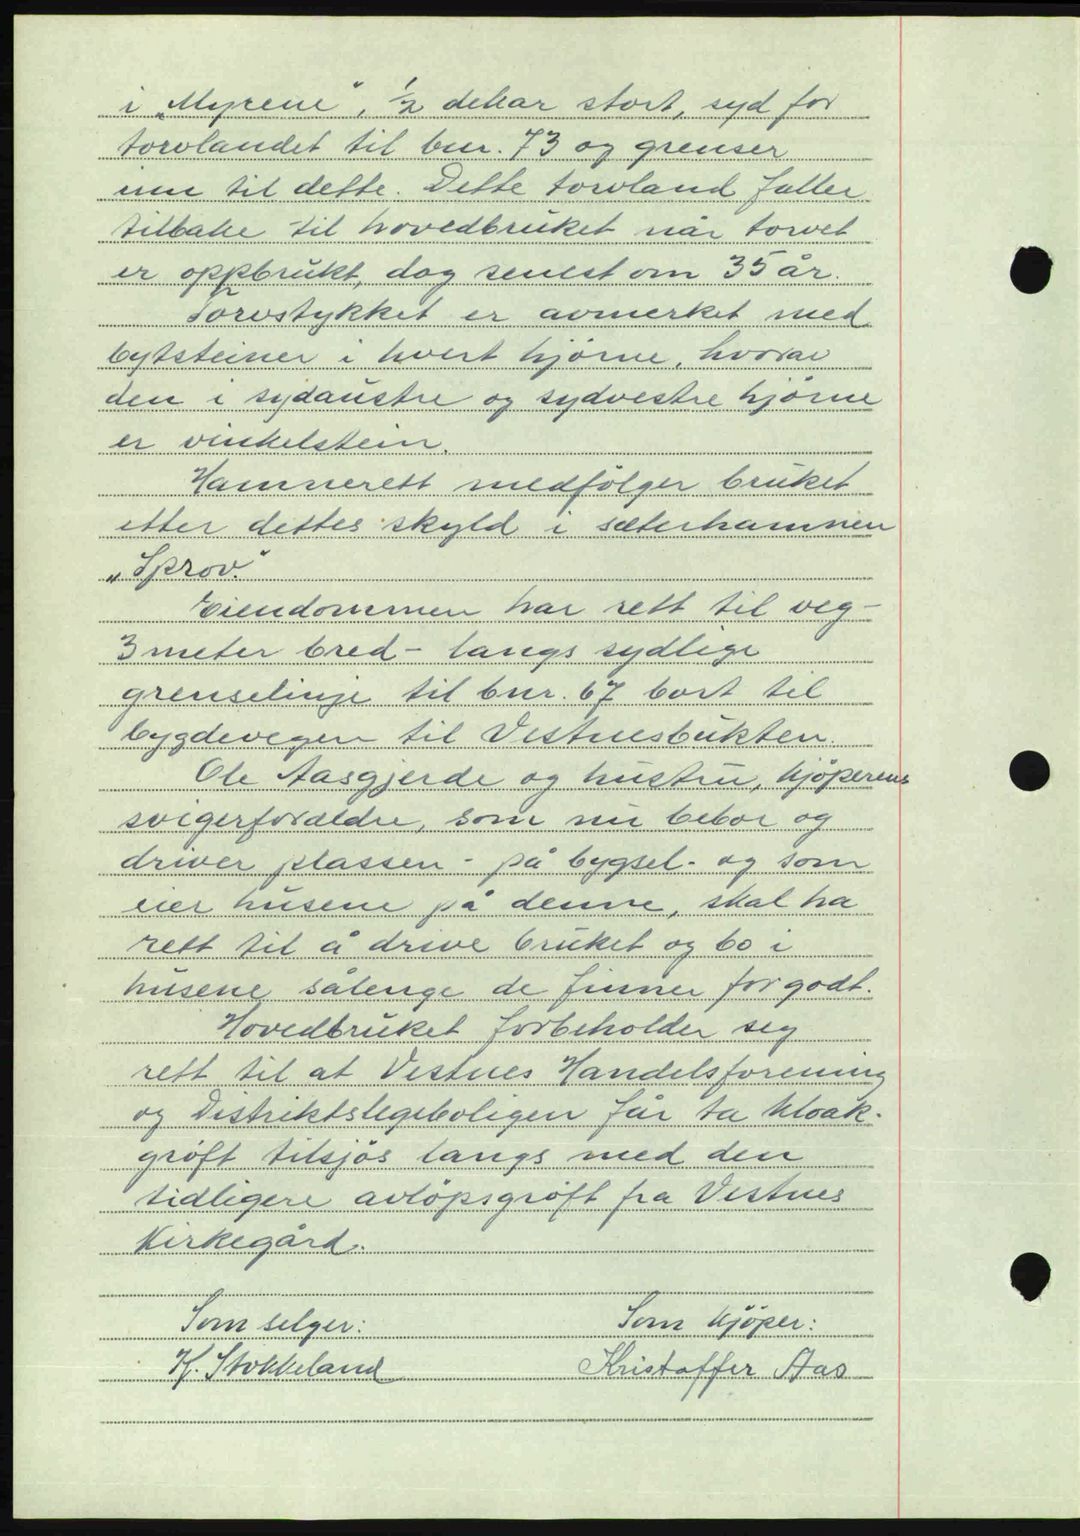 i „Myrene", ½ dekar stort, syd for
torvlandet til bnr. 73 og grenser
inn til dette. Dette torvland faller
tilbake til hovedbruket når torvet
er oppbrukt, dog senest om 35 år.
Torvstykket er avmerket med
bytsteiner i hvert hjörne, hvorav
den i sydaustre og sydvestre hjörne
er vinkelstein.
Hamnerett medfölger bruket
etter dettes skyld i sæterhamnen
„Sprov."
Eiendommen har rett til veg -
3 meter bred - langs sydlige
grenselinje til bnr. 67 bort til
bygdevegen til Vestnesbukten.
Ole Aasgjerde og hustru, kjöperens
svigerforældre, som nu bebor og
driver plassen - på bygsel - og som
eier husene på denne, skal ha
rett til å drive bruket og bo i
husene sålenge de finner for godt.
Hovedbruket forbeholder seg
rett til at Vestnes Handelsforening
og Distriktslegeboligen får ta kloak-
gröft tilsjös langs med den
tidligere avlöpsgröft fra Vestnes
Kirkegård.
Som selger: Som kjöper:
K. Stokkeland Kristoffer Aas